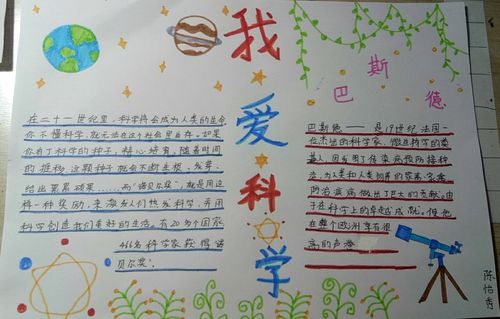 我爱科学
在二十一世纪里，科学将会成为人类的生命
你不懂科学，就无法在这个社会里生存。如果
你有了科学的种子，精心培育，随着时间
的推移，这颗种子就会不断生根、发芽
给出累累硕果……而"诺贝尔奖"，就是用这
样一种奖励，来激发人们热爱科学，并用
科学创造我们美好的生活。有20多个国家
466名科学家获得诺
贝尔奖。
巴斯德
巴斯德——是19世纪法国一
位杰出的科学家，微生物学的奠
基人，因发明了传染病预防接种
法，为人类和人类饲养的家禽、家畜
防治疾病做出了巨大的贡献。由
于在科学上的卓越成就，使他
在整个欧洲享有很
高的声誉
陈怡秀